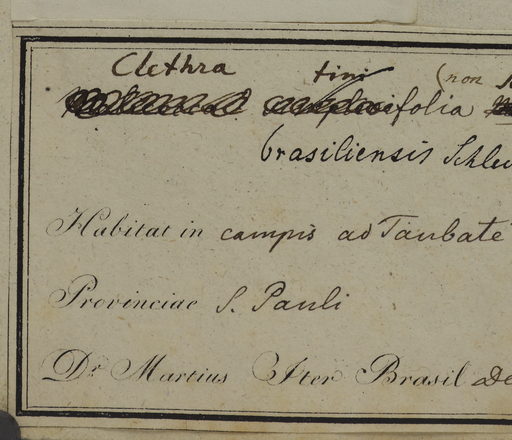 Clethra tini (non
folia
brasiliensis Schle
Habitat in campis ad Taubaté
Provinciae S. Pauli
Dr Martius Iter Brasil De